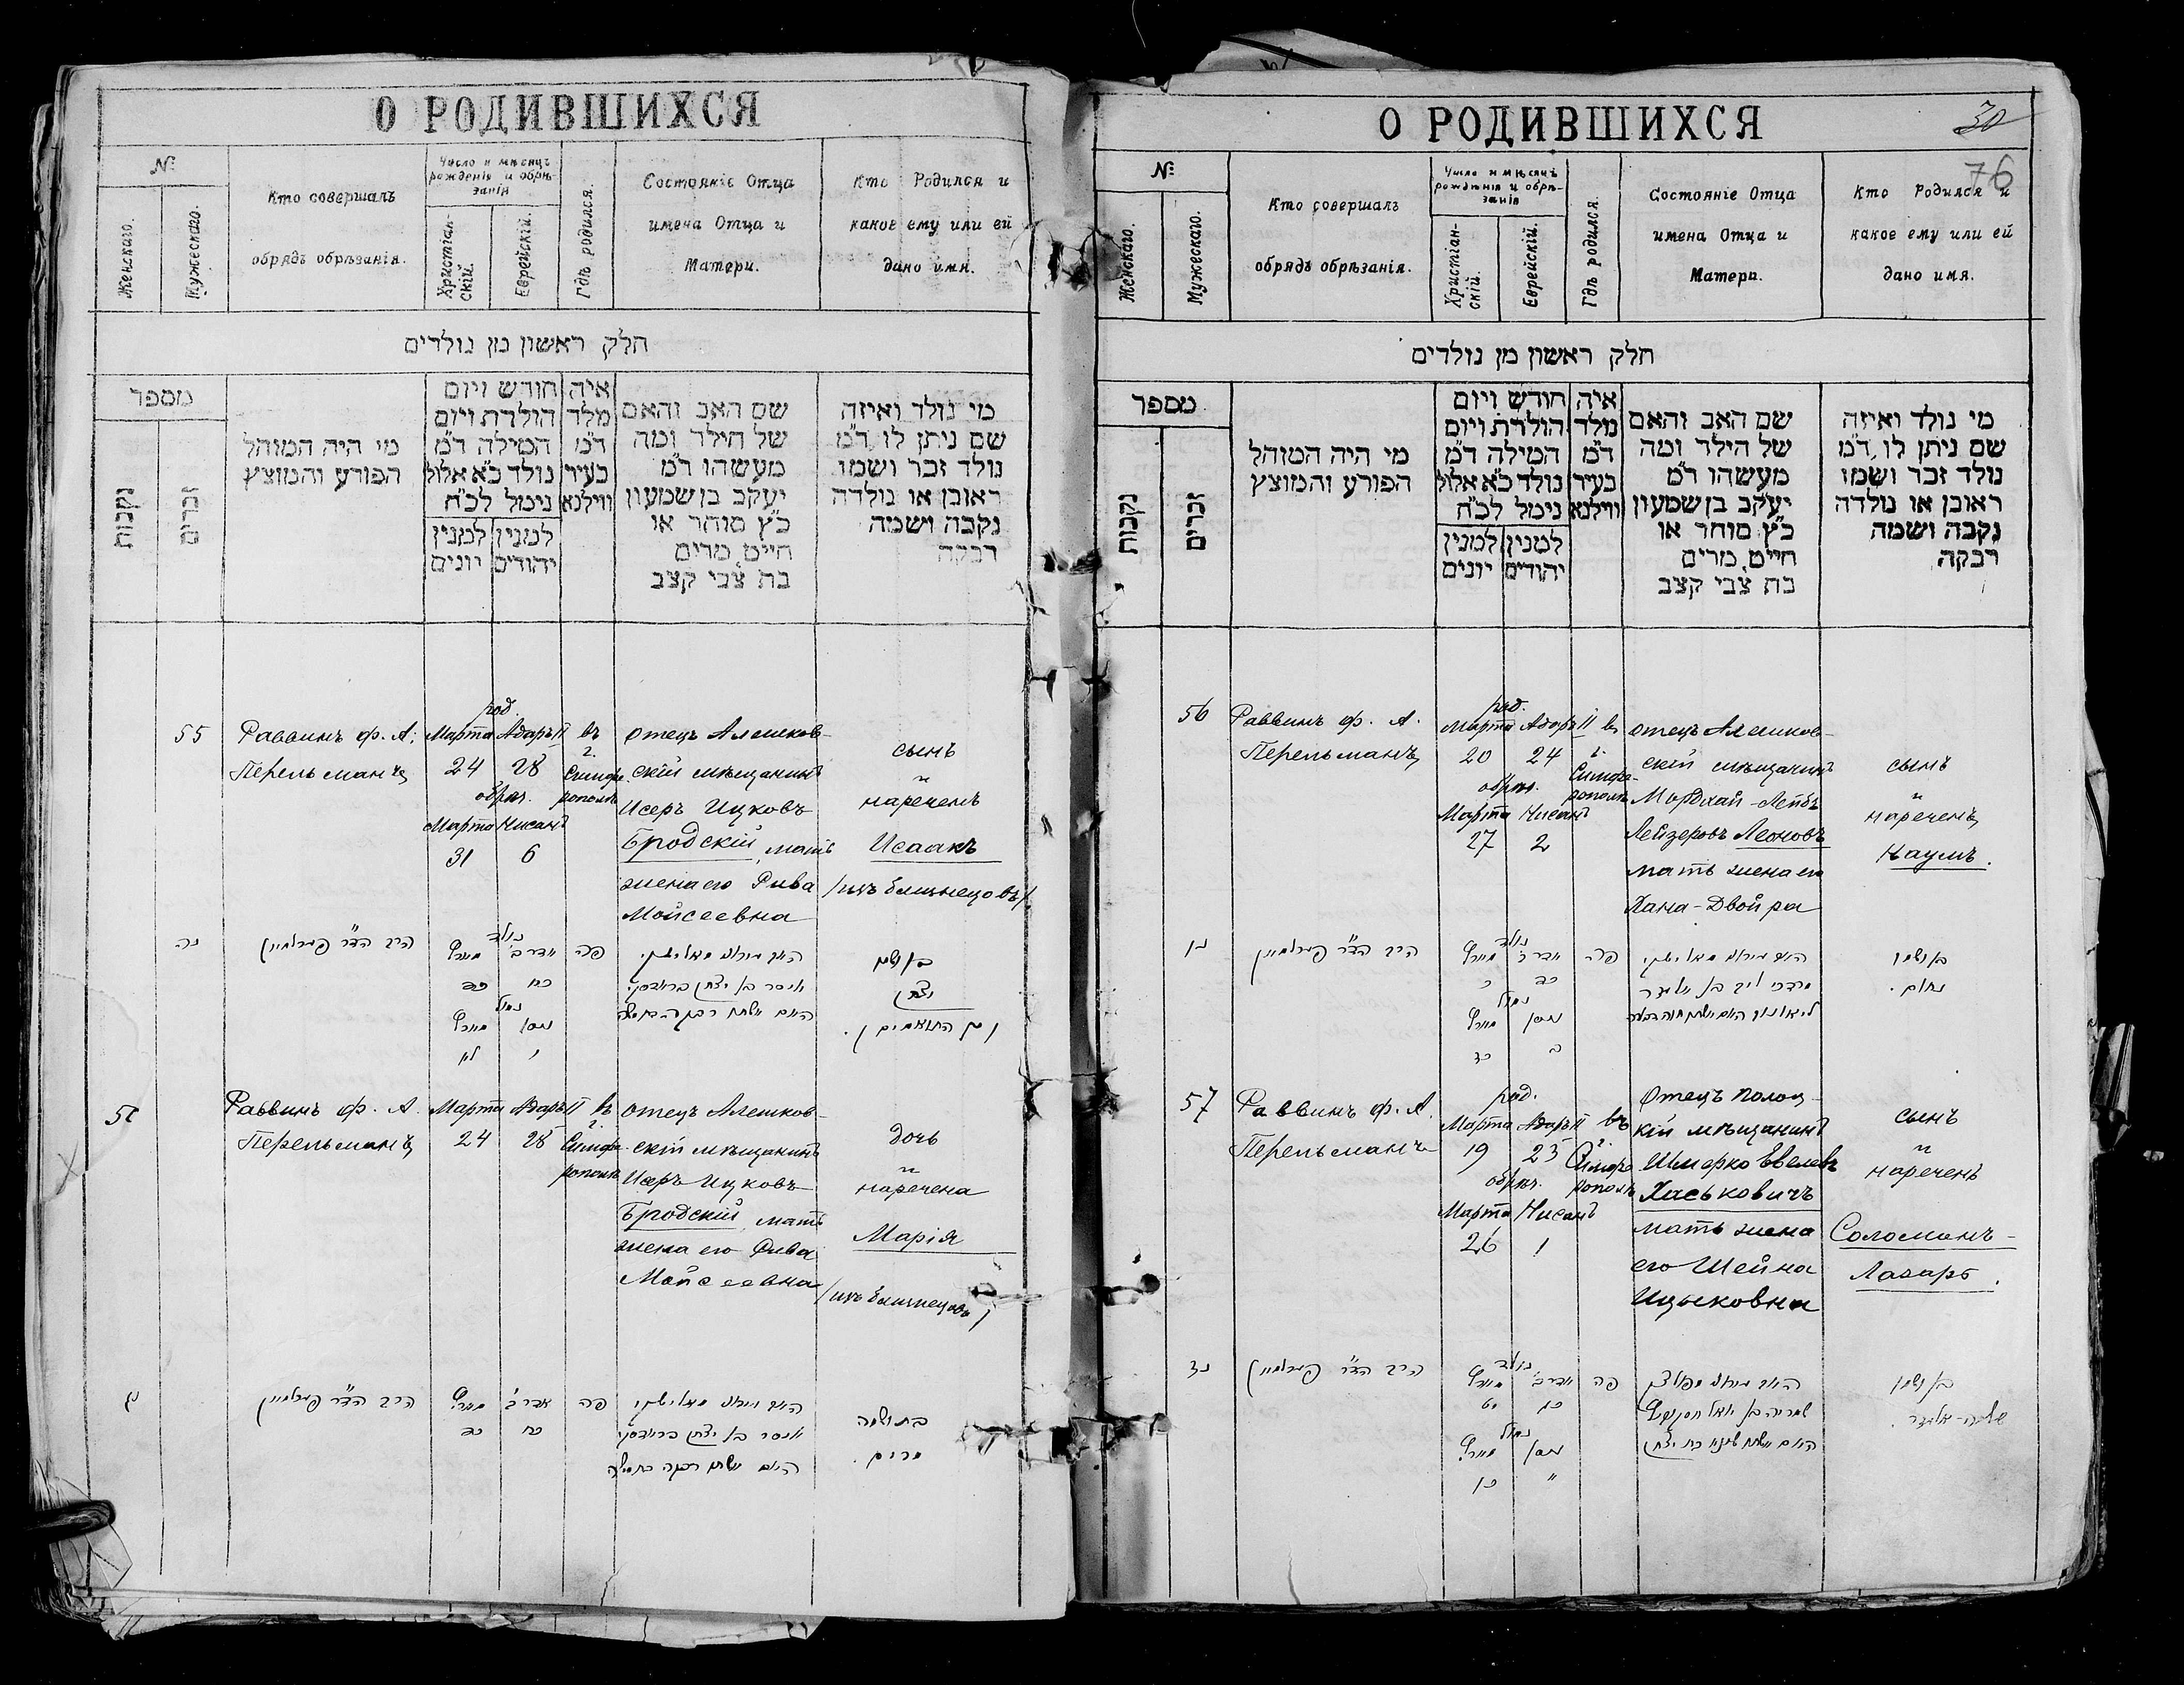 О РОДИВШИХСЯ
№
Женскаго.
Мужескаго.
Кто совершалъ
обрядъ обрѣзанія.
Число и мѣсяцъ
рожденія и обрѣ-
занія
Христіан-
скій.
Еврейскій.
Гдѣ родился.
Состояніе Отца
имена Отца и
Матери.
Кто Родился и
какое ему или ей
дано имя.
חלק ראשון מן נולדים
מספר
נקבות
זכרים
מי היה המוהל
הפורע והמוצץ
חודש ויום
הולדת ויום
המילה ד"מ
נולד כ"א אלול
נימל לכ"ח
למנין
יהודים
למנין
יונים
איה
מלד
ד"מ
בעיר
ווילנא
שם האב והאם
של הילד ומה
מעשהו ד"מ
יעקב בן שמעון
כ"ץ סוחר או
חייט, מרים
בת צבי קצב
מי נולד ואיזה
שם ניתן לו, ד"מ
נולד זכר ושמו
ראובן או נולדה
נקבה ושמה
רבקה
55
Раввинъ ф. А.
Перельманъ
род.
Марта Адаръ II
24 28
обрѣз.
Марта Нисанъ
31 6
въ
г.
Симфе-
рополѣ
отецъ Алешков-
скій мѣщанинъ
Исеръ Ицковъ
Бродскій, мать
жена его Рива
Мойсеевна
сынъ
и
нареченъ
Исаакъ
/изъ близнецовъ/.
נה
הרב הד"ר פערלמאן
נולד
אדר ב' מערץ
כח כד
נמול
ניסן מערץ
ו לא
פה
בן ושמו
יצחק
Раввинъ ф. А.
Перельманъ
Марта Адаръ II
24 28
въ
г.
Симфе-
рополѣ
отецъ Алешков-
скій мѣщанинъ
Исеръ Ицковъ
Бродскій, мать
жена его Рива
Мойсеевна
дочь
и
наречена
Марія
/изъ близнецовъ/
הרב הד"ר פערלמאן
אדר ב' מערץ
כח כד
פה
בת ושמה
מרים.
О РОДИВШИХСЯ
30
76
№
Женскаго.
Мужескаго.
Кто совершалъ
обрядъ обрѣзанія.
Число и мѣсяцъ
рожденія и обрѣ-
занія
Христіан-
скій.
Еврейскій.
Гдѣ родился.
Состояніе Отца
имена Отца и
Матери.
Кто Родился и
какое ему или ей
дано имя.
חלק ראשון מן נולדים
מספר
נקבות
זכרים
מי היה המוהל
הפורע והמוצץ
חודש ויום
הולדת ויום
המילה ד"מ
נולד כ"א אלול
נימל לכ"ח
למנין
יהודים
למנין
יונים
איה
מלד
ד"מ
בעיר
ווילנא
שם האב והאם
של הילד ומה
מעשהו ד"מ
יעקב בן שמעון
כ"ץ סוחר או
חייט, מרים
בת צבי קצב
מי נולד ואיזה
שם ניתן לו, ד"מ
נולד זכר ושמו
ראובן או נולדה
נקבה ושמה
רבקה
56
Раввинъ ф. А.
Перельманъ
род.
Марта Адаръ II
20 24
обрѣз.
Марта Нисанъ
27 2
въ
г.
Симфе-
рополѣ
отецъ Алешков-
скій мѣщанинъ
Мордхай-Лейбъ
Лейзеровъ Леоновъ
мать жена его
Хана-Двойра
сынъ
и
нареченъ
Наумъ.
הרב הד"ר פערלמאן
נולד
אדר ב' מערץ
כד כ
נמול
ניסן מערץ
ב כז
פה
בן ושמו
נחום.
57
Раввинъ ф. А.
Перельманъ
род.
Марта Адаръ II
19 23
обрѣз.
Марта Нисанъ
26 1
въ
г.
Симфе-
рополѣ
Отецъ Полоц-
кій мѣщанинъ
Шмерко Евелевъ
Хаськовичъ
мать жена
его Шейна
Ицыковна
сынъ
и
нареченъ
Соломонъ-
Лазарь.
נז
הרב הד"ר פערלמאן
נולד
אדר ב' מערץ
כג יט
נמול
ניסן מערץ
א כו
פה
בן ושמו
שלמה-אליעזר.